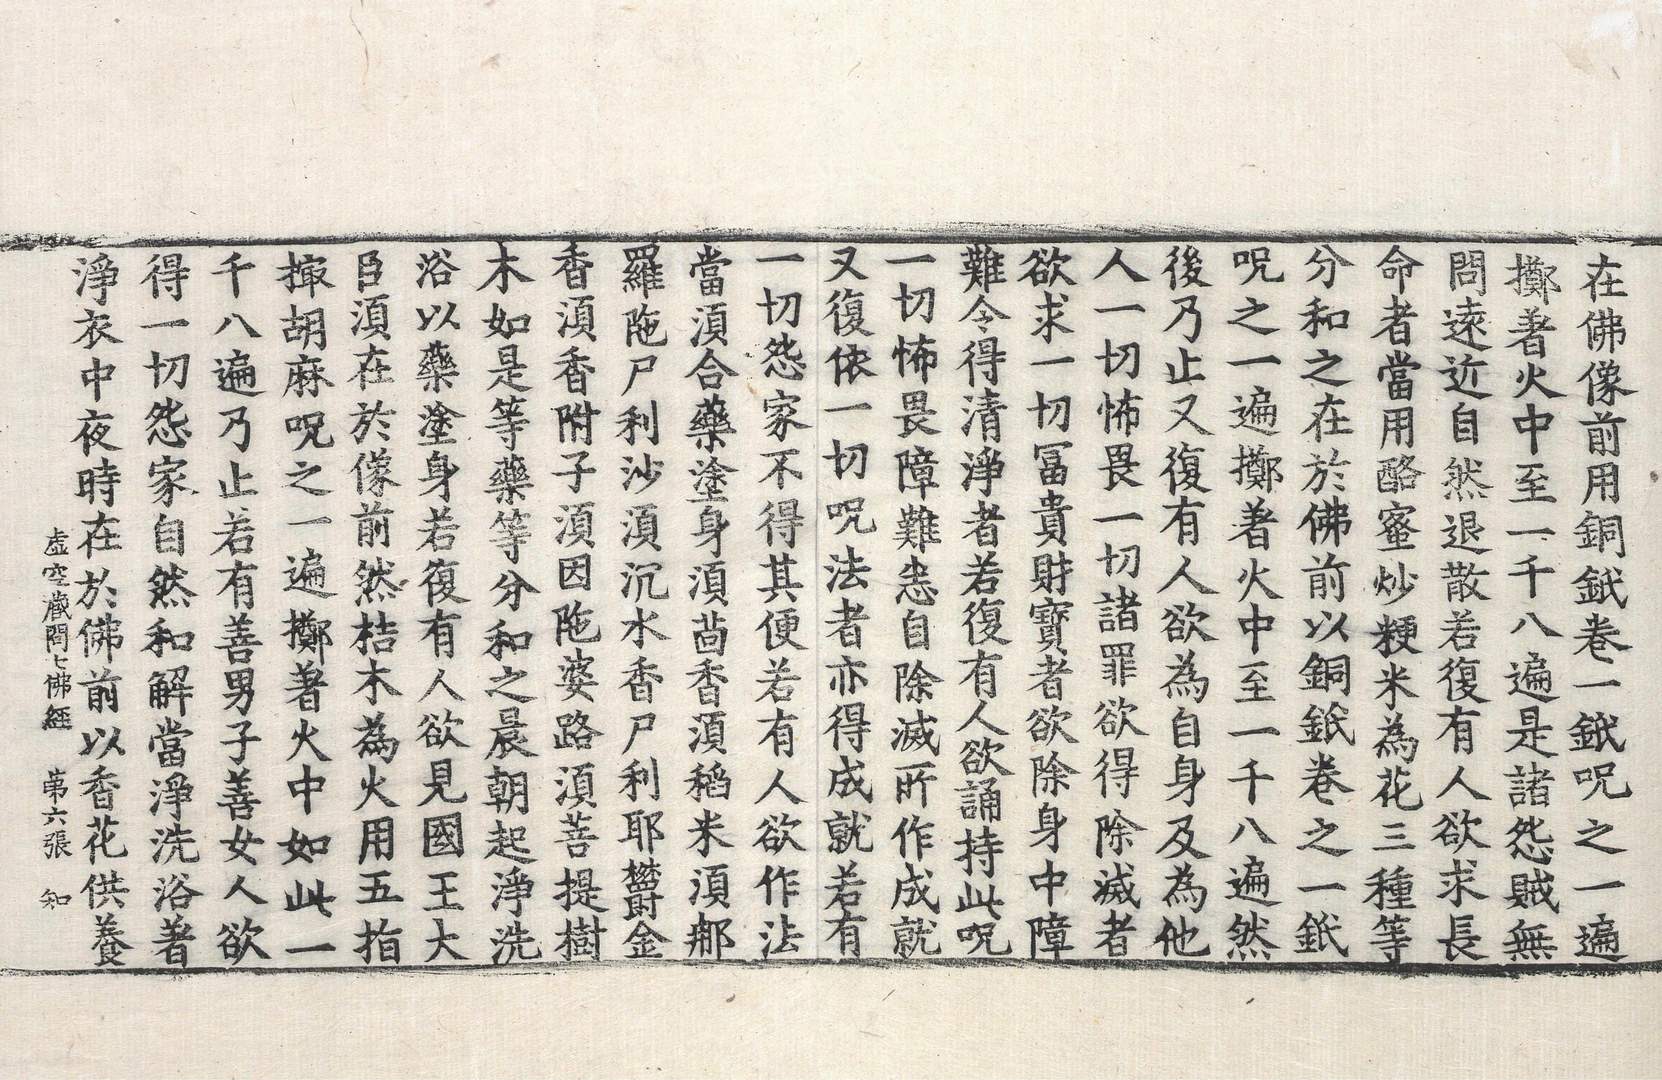 在佛像前用銅鈱卷一鈱呪之一遍
擲著火中至一千八遍是諸怨賊無
問遠近自然退散若復有人欲求長
命者當用酪蜜炒粳米為花三種等
分和之在於佛前以銅鈱卷之一鈱
呪之一遍擲著火中至一千八遍然
後乃止又復有人欲為自身及為他
人一切怖畏一切諸罪欲得除滅者
欲求一切冨貴財寶者欲除身中障
難令得清淨者若復有人欲誦持此呪
一切怖畏障難悉自除滅所作成就
又復依一切呪法者亦得成就若有
一切怨家不得其便若有人欲作法
當湏合藥塗身湏茴香湏稻米湏那
羅陁尸利沙湏沉水香尸利耶欝金
香湏香附子湏因陁婆路湏菩提樹
木如是等藥等分和之晨朝起淨洗
浴以藥塗身若復有人欲見國王大
臣湏在於像前然桔木為火用五指
掫胡麻呪之一遍擲著火中如此一
千八遍乃止若有善男子善女人欲
得一切怨家自然和解當淨洗浴著
淨衣中夜時在於佛前以香花供養
虛空藏問七佛經 第六張 和